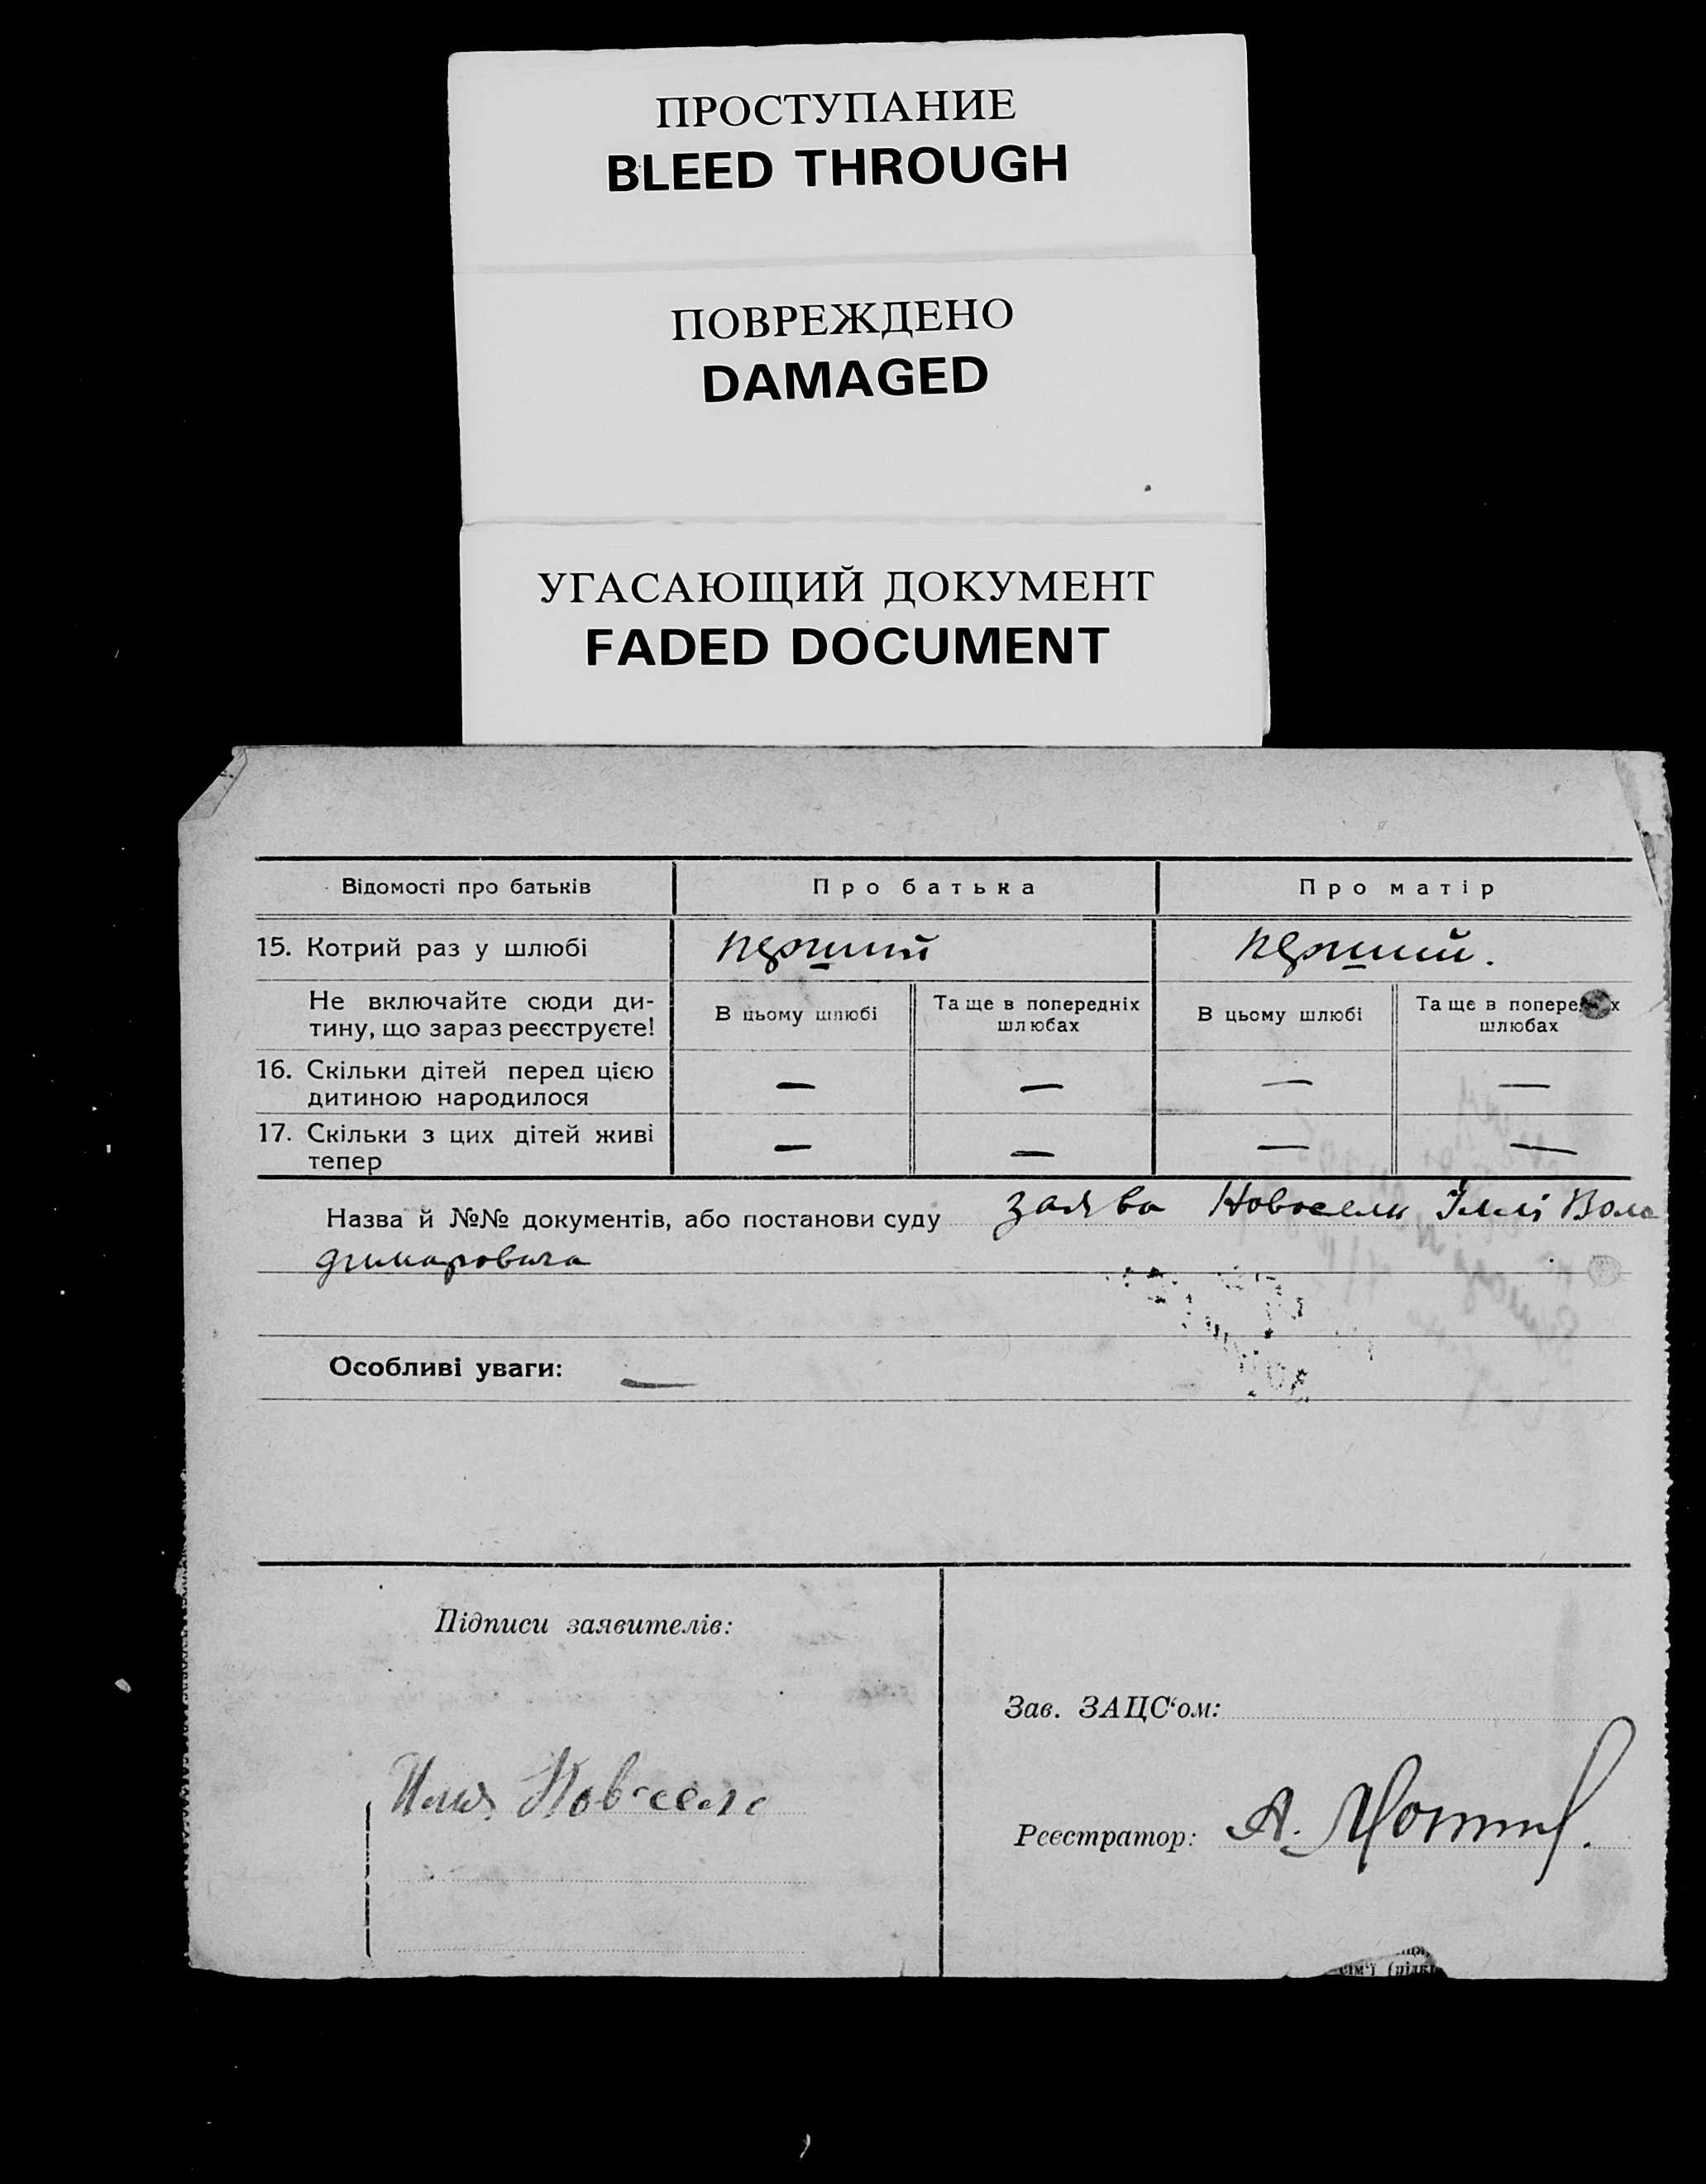 ПРОСТУПАНИЕ
BLEED THROUGH
ПОВРЕЖДЕНО
DAMAGED
УГАСАЮЩИЙ ДОКУМЕНТ
FADED DOCUMENT
Відомості про батьків Про батька Про матір
15. Котрий раз у шлюбі перший перший.
Не включайте сюди ди-
тину, що зараз реєструєте!
В цьому шлюбі
Та ще в попередніх
шлюбах
В цьому шлюбі
Та ще в
шлюбах
16. Скільки дітей перед цією
дитиною народилося
— — — —
17. Скільки з цих дітей живі
тепер
— — — —
Назва й №№ документів, або постанови суду заява Іллі Воло
димировича
Особливі уваги: —
Підписи заявителів:
Зав. ЗАЦС‘ом:
Реєстратор: А.